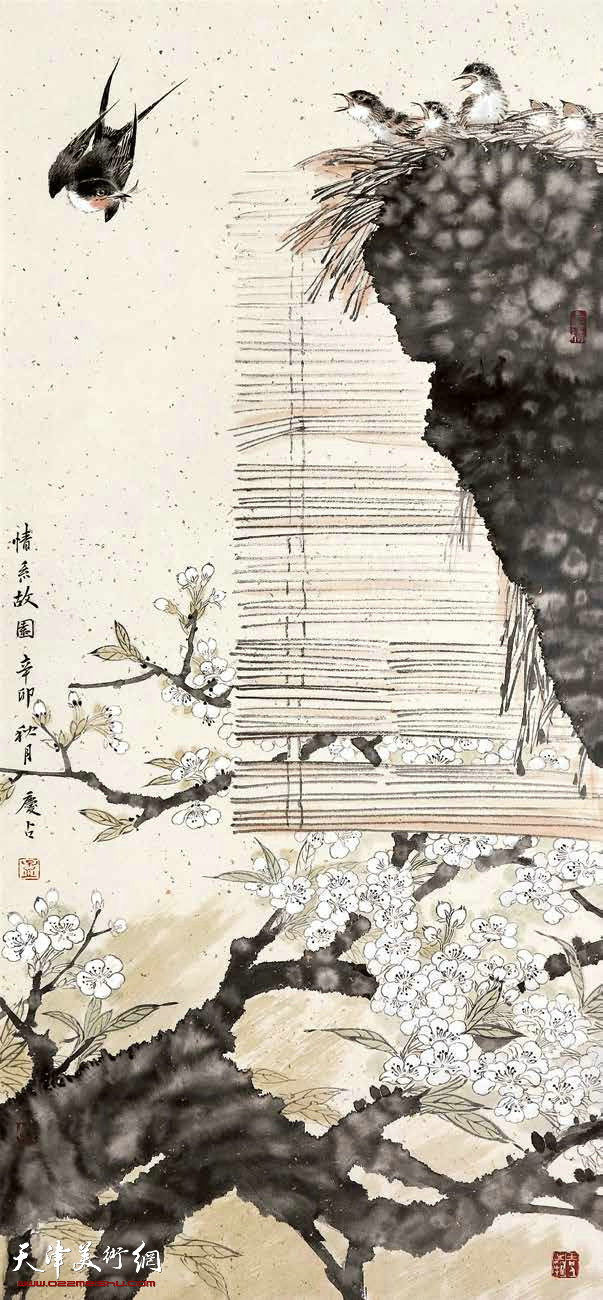 情系故園 辛卯秋月 慶占
天津美術網
www.022meishu.com